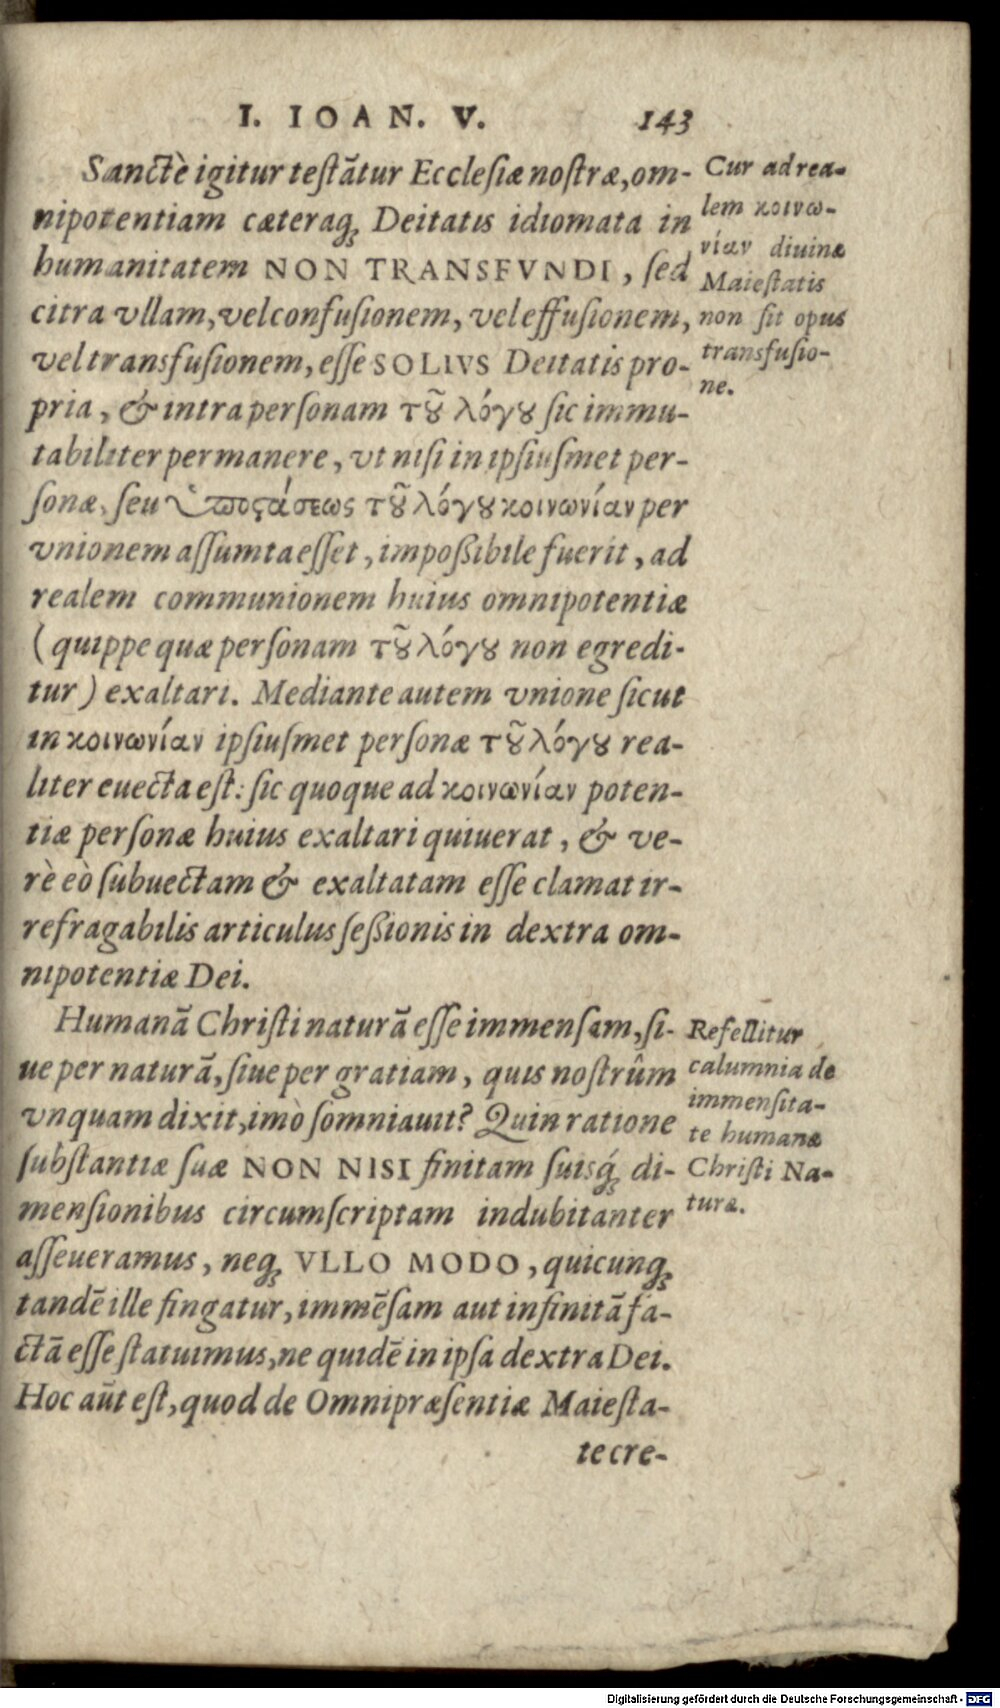 I. IOAN. V. 143
Sanctè igitur testātur Ecclesiæ nostræ, om-
nipotentiam cæteraq́ꝫ Deitatis idiomata in
humanitatem NON TRANSFVNDI, sed
citra vllam, vel confusionem, vel effusionem,
vel transfusionem, esse SOLIVS Deitatis pro-
pria, & intra personam τȣ͂ λόγȣ sic immu-
tabiliter permanere, vt nisi in ipsiusmet per-
sonæ, seu ὑποϛάσεως τȣ͂ λόγȣ κοινωνίαν per
vnionem assumta esset, impoßibile fuerit, ad
realem communionem huius omnipotentiæ
(quippe quæ personam τȣ͂ λόγȣ non egredi-
tur) exaltari. Mediante autem vnione sicut
in κοινωνίαν ipsiusmet personæ τȣ͂ λόγȣ rea-
liter euecta est: sic quoque ad κοινωνίαν poten-
tiæ personæ huius exaltari quiuerat, & ve-
rè eò subuectam & exaltatam esse clamat ir-
refragabilis articulus seßionis in dextra om-
nipotentiæ Dei.
Humanā Christi naturā esse immensam, si-
ue per naturā, siue per gratiam, quis nostrûm
vnquam dixit, imò somniauit? Quin ratione
substantiæ suæ NON NISI finitam suisq́ꝫ di-
mensionibus circumscriptam indubitanter
asseueramus, neqꝫ VLLO MODO, quicunqꝫ
tandē ille fingatur, immēsam aut infinitā fa-
ctā esse statuimus, ne quidē in ipsa dextra Dei.
Hoc aūt est, quod de Omnipræsentiæ Maiesta-
te cre-
Cur ad rea-
lem κοινω-
νίαν diuinæ
Maiestatis
non sit opus
transfusio-
ne.
Refellitur
calumnia de
immensita-
te humanæ
Christi Na-
turæ.
Digitalisierung gefördert durch die Deutsche Forschungsgemeinschaft - DFG